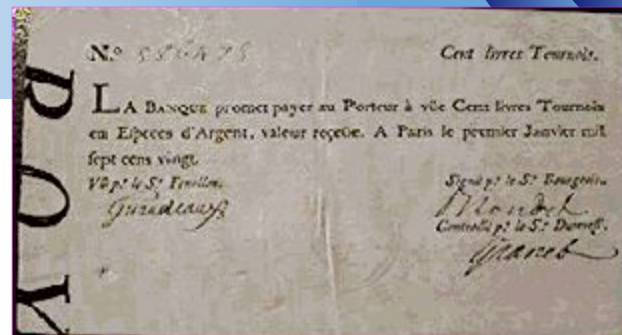 ROY
N.º
Cent livres Tournois.
LA BANQUE promet payer au Porteur à vûe Cent livres Tournois
en Especes d'Argent, valeur reçeüe. A Paris le premier Janvier mil
sept cens vingt.
Vû p.r le S.r Fenellon.
Signé p.r le S.r Bourgeois.
Giraudeau
Controllé p.r le S.r Durevest.
Granet